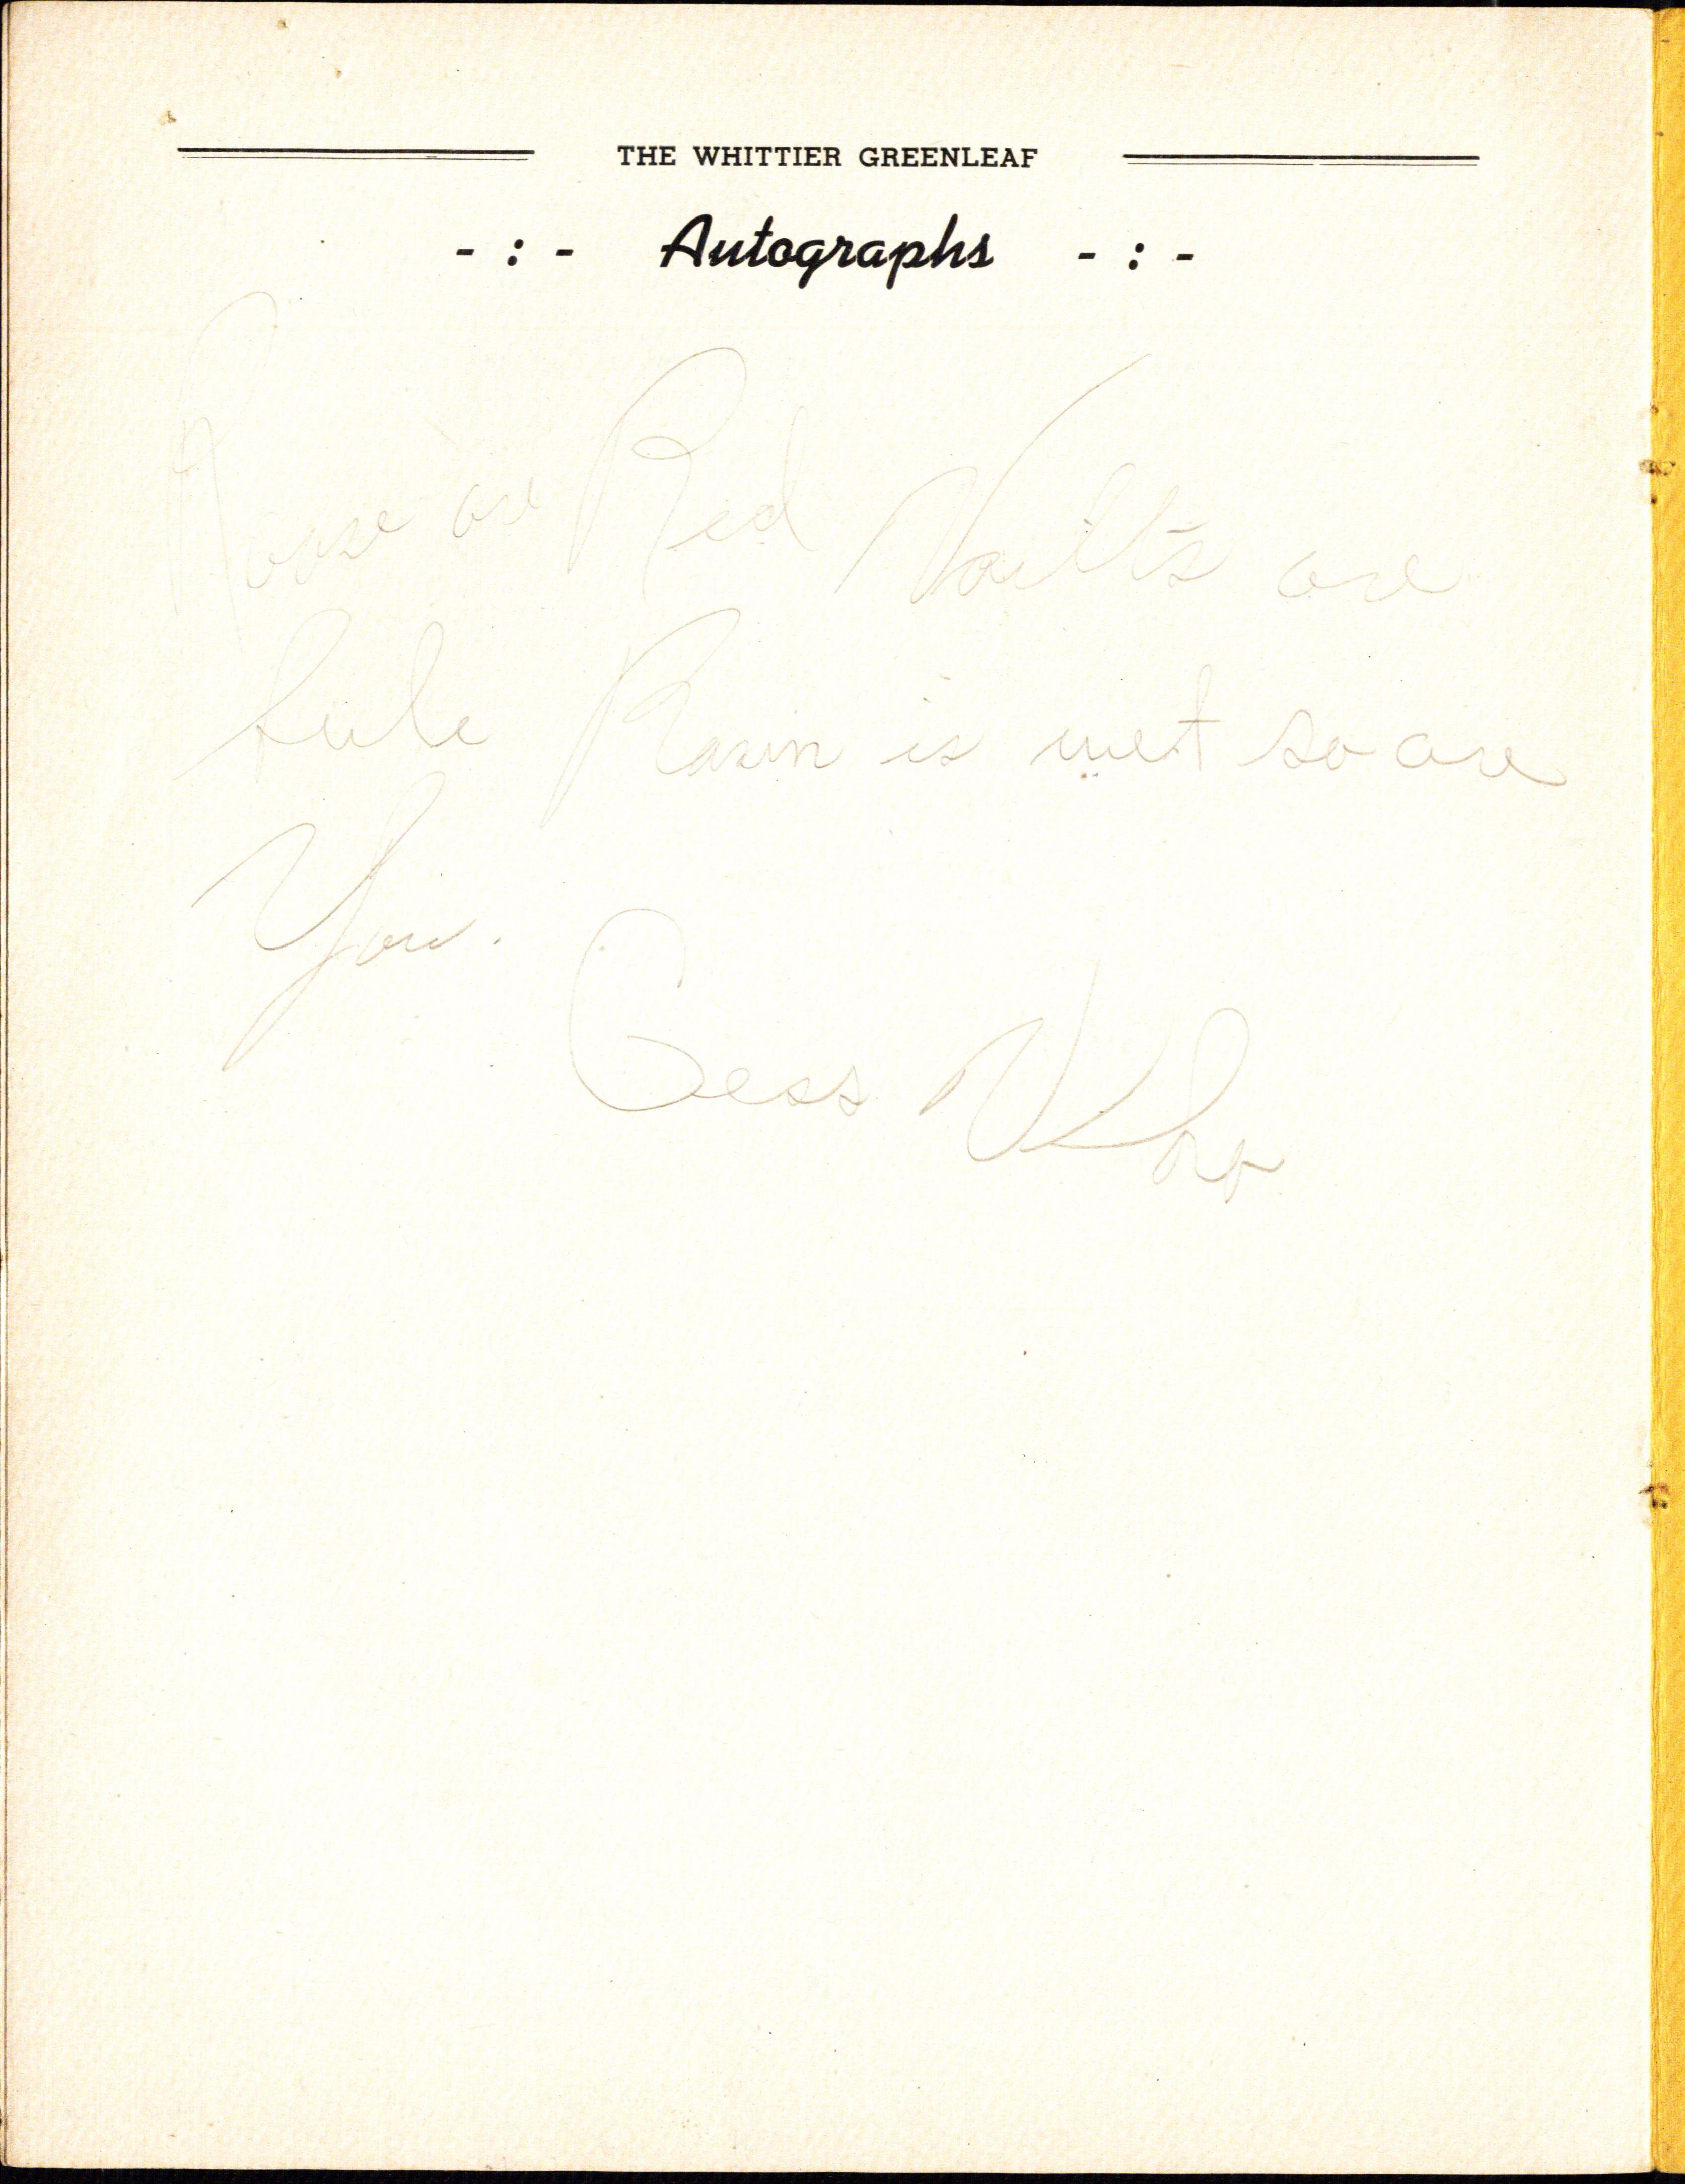 THE WHITTIER GREENLEAF
- : - Autographs - : -
Roase are Red Vailts are
bule Rasin is wet so are
You.
Gess Who